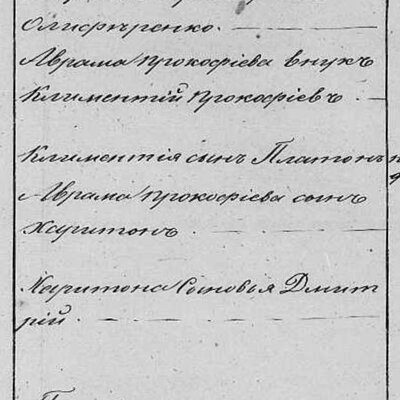 Олиференко.
Аврама Прокофіева внукъ
Климентій Прокофіевъ
Климентія сынъ Платонъ
Аврама Прокофіева сынъ
Харитонъ
Харитона Сыновья Дмит
рій